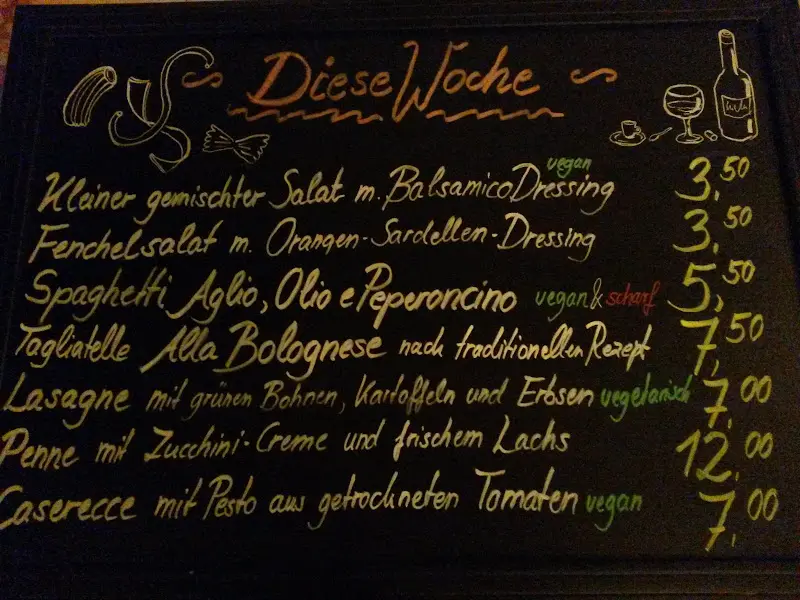 Diese Woche
Kleiner gemischter Salat m. Balsamico Dressing vegan 3,50
Fenchelsalat m. Orangen-Sardellen-Dressing 3,50
Spaghetti Aglio, Olio e Peperoncino vegan & scharf 5,50
Tagliatelle Alla Bolognese nach traditionellen Rezept 7,50
Lasagne mit grünen Bohnen, Kartoffeln und Erbsen vegetarisch 7,00
Penne mit Zucchini-Creme und frischem Lachs 12,00
Caserecce mit Pesto aus getrockneten Tomaten vegan 7,00